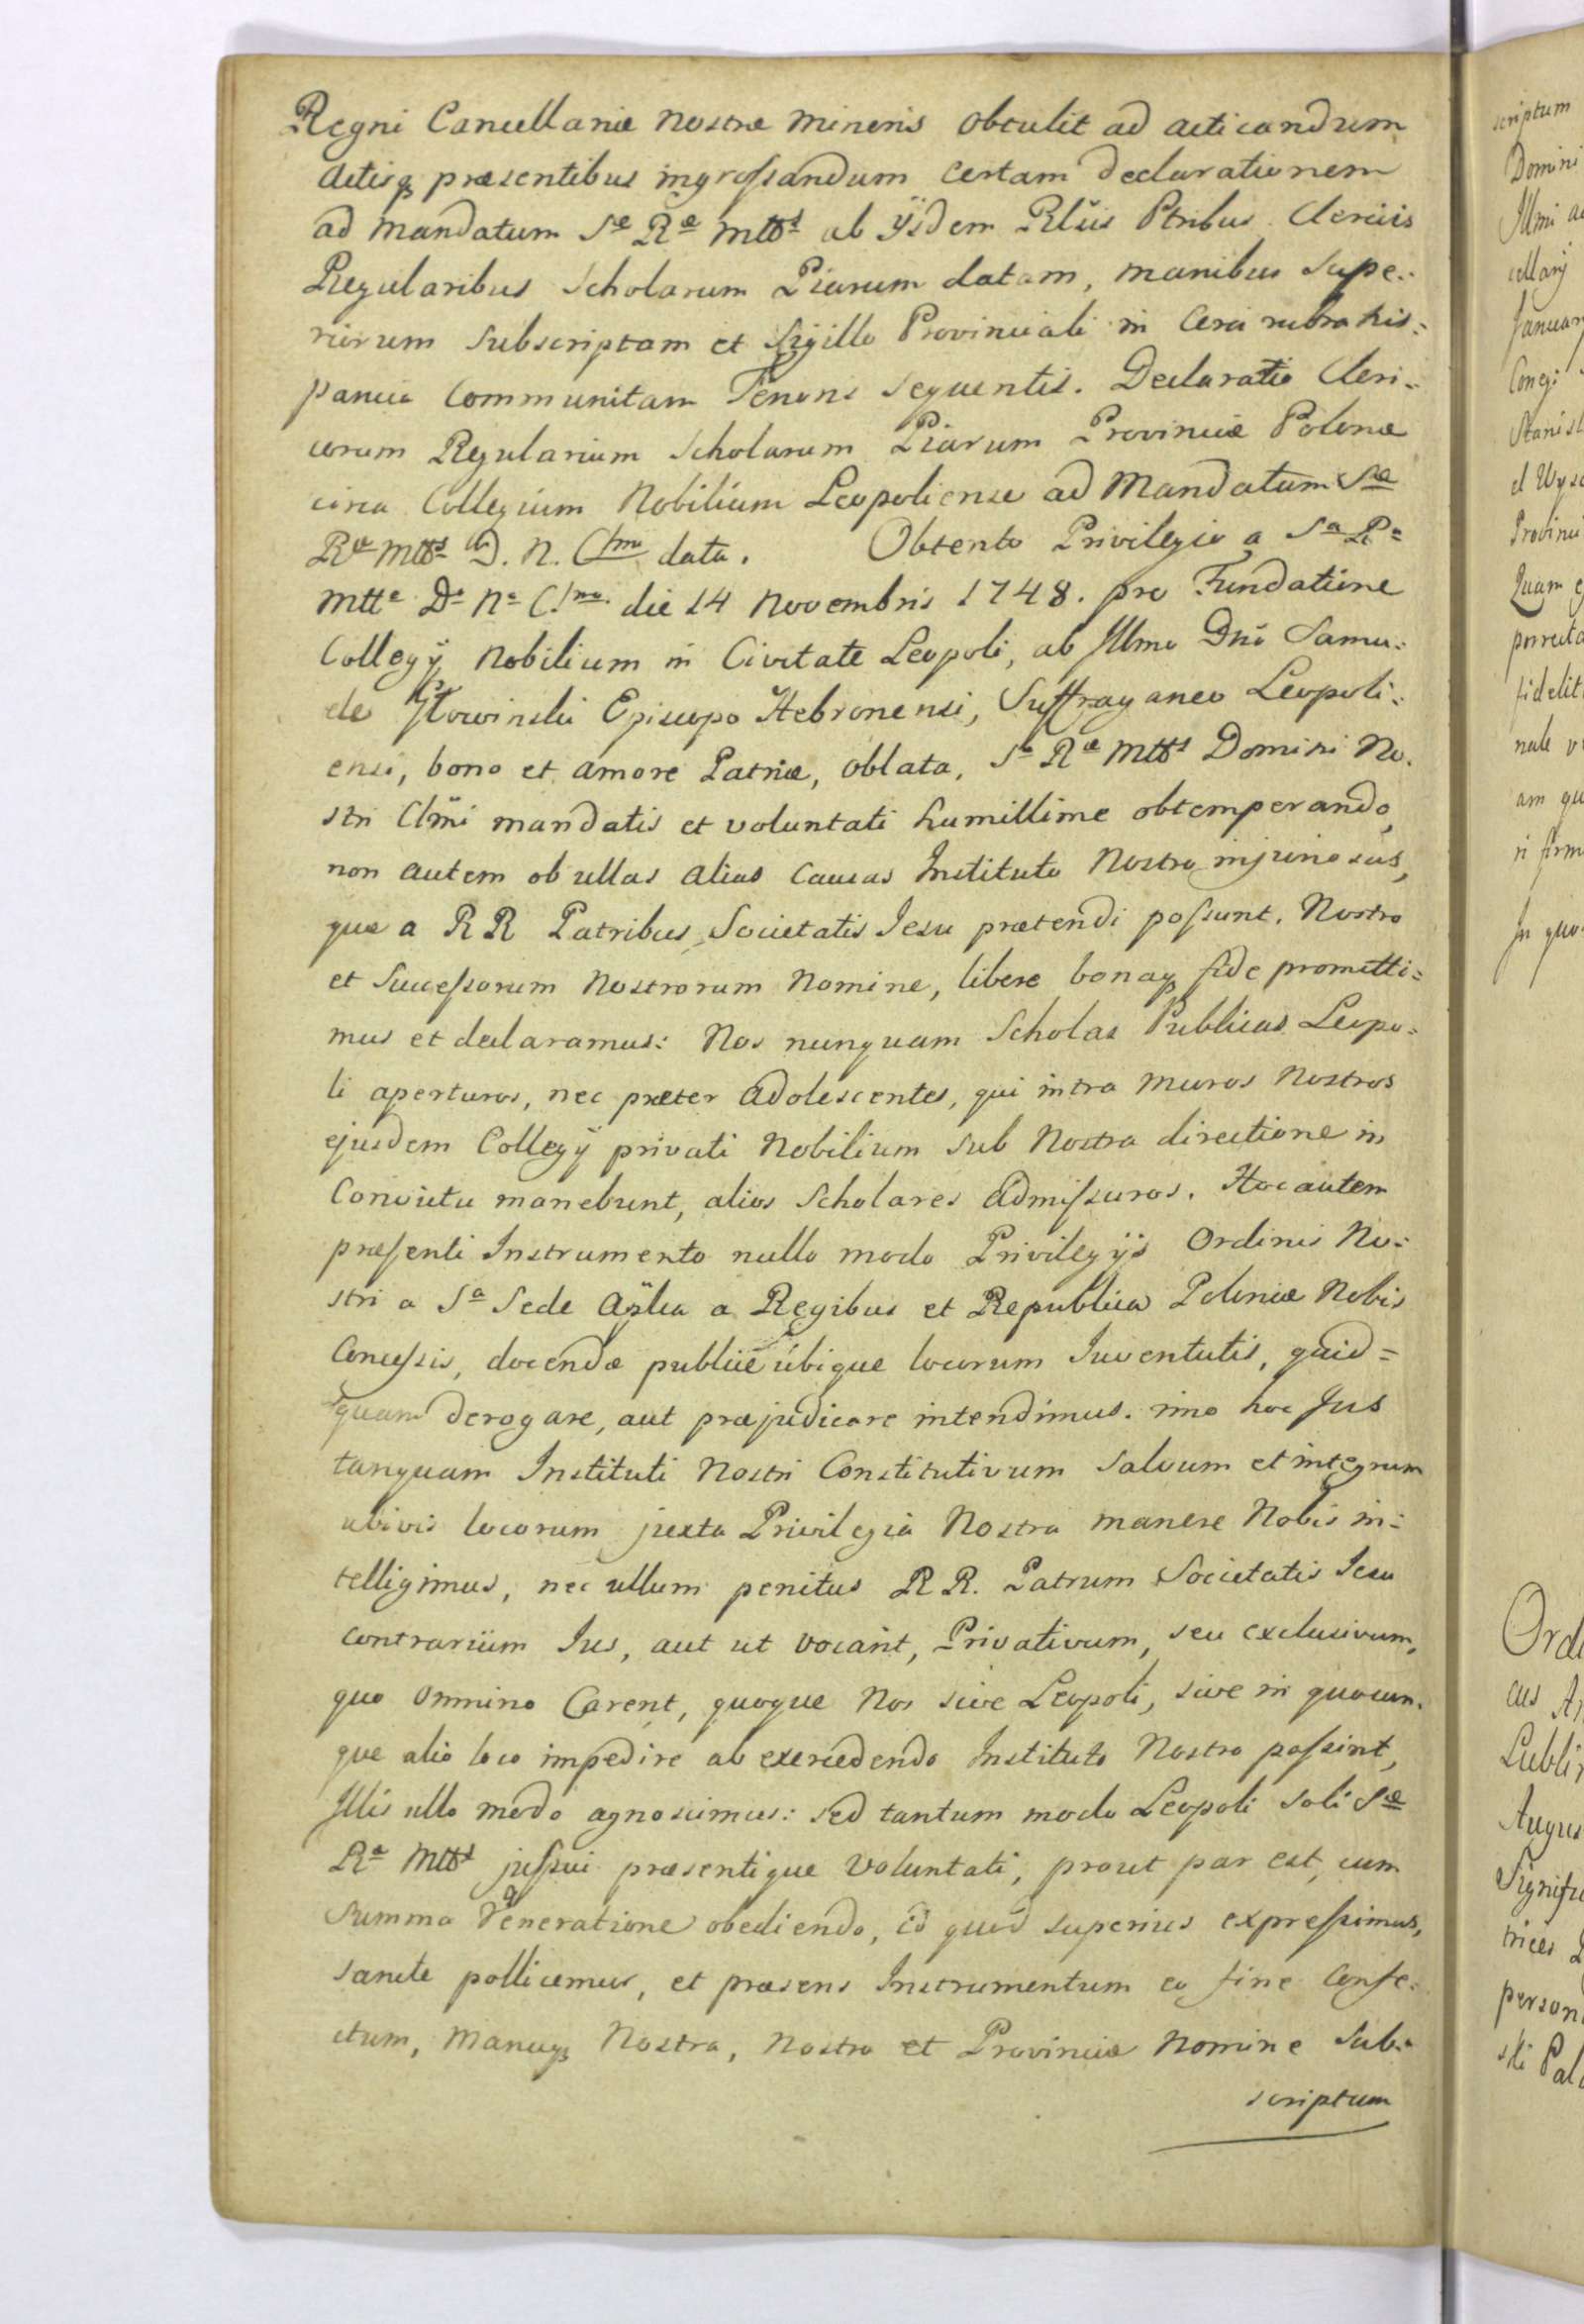 Regni Cancellariæ Nostræ Minoris obtulit ad acticandum
Actisq₃ præsentibus ingrossandum certam declarationem
ad mandatum Sæ Ræ Mttis ab ijsdem Rlūs Ptribus Clericis
Regularibus Scholarum Piarum datam, manibus Supe=
riorum subscriptam et Sigillo Provinciali in Cera rubra his=
panica Communitam Tenoris sequentis. Declaratio Cleri=
corum Regularium Scholarum Piarum Provinciæ Polonæ
circa Collegium Nobilium Leopoliense ad Mandatum Sæ
Ræ Mttis D. N. Clmi data. Obtento Privilegio a Sa Ra
Mtte Do No Clmo die 14 Novembris 1748. pro Fundatione
Collegÿ Nobilium in Civitate Leopoli, ab Illmo Dnō Samu=
ele Głowinski Episcopo Hebronensi, Suffraganeo Leopoli=
ensi, bono et amore Patriæ, oblata, Sæ Ræ Mttis Domini No=
stri Clmi mandatis et voluntati humillime obtemperando,
non autem ob ullas alias causas Instituto Nostro injuriosas,
quæ a RR Patribus Societatis Jesu prætendi possunt. Nostro
et Successorum Nostrorum Nomine, libere bonaq₃ fide promitti=
mus et declaramus: Nos nunquam Scholas Publicas Leopo=
li aperturos, nec præter Adolescentes, qui intra muros Nostros
ejusdem Collegÿ privati Nobilium sub Nostra directione in
Convictu manebunt, alios Scholares Admissuros. Hoc autem
præsenti Instrumento nullo modo Privilegÿs Ordinis No=
stri a Sa Sede Aplica a Regibus et Republica Poloniæ Nobis
Concessis, docendæ publicè ubique locorum Juventutis, quid=
quam derogare, aut præjudicare intendimus. imo hoc Jus
tanquam Instituti Nostri Constitutivum salvum et integrum
ubivis locorum juxta Privilegia Nostra manere Nobis in=
telligimus, nec ullum penitus RR. Patrum Societatis Jesu
contrarium Jus, aut ut vocant, Privativum, seu exclusivum,
quo omnino Carent, quoque Nos sive Leopoli, sive in quocun=
que alio loco impedire ab exercendo Instituto Nostro possint,
Illis ullo modo agnoscimus: sed tantum modo Leopoli soli Sæ
Ræ Mttis jussui præsentique voluntati, prout par est, cum
summa Veneratione obediendo, id quod superius expressimus,
sancte pollicemur, et præsens Instrumentum eo fine Confe=
ctum, Manuq₃ Nostra, Nostro et Provinciæ Nomine Sub=
scriptum
scriptum
Domini
Illmi
cellarÿ
Januarÿ
Stanisl
Quam
porrecta
fidelit
nale
am qu
ri firm
In quo
Ord
cus
Lubli
Augus
Signifi
trices
person
ski Pala